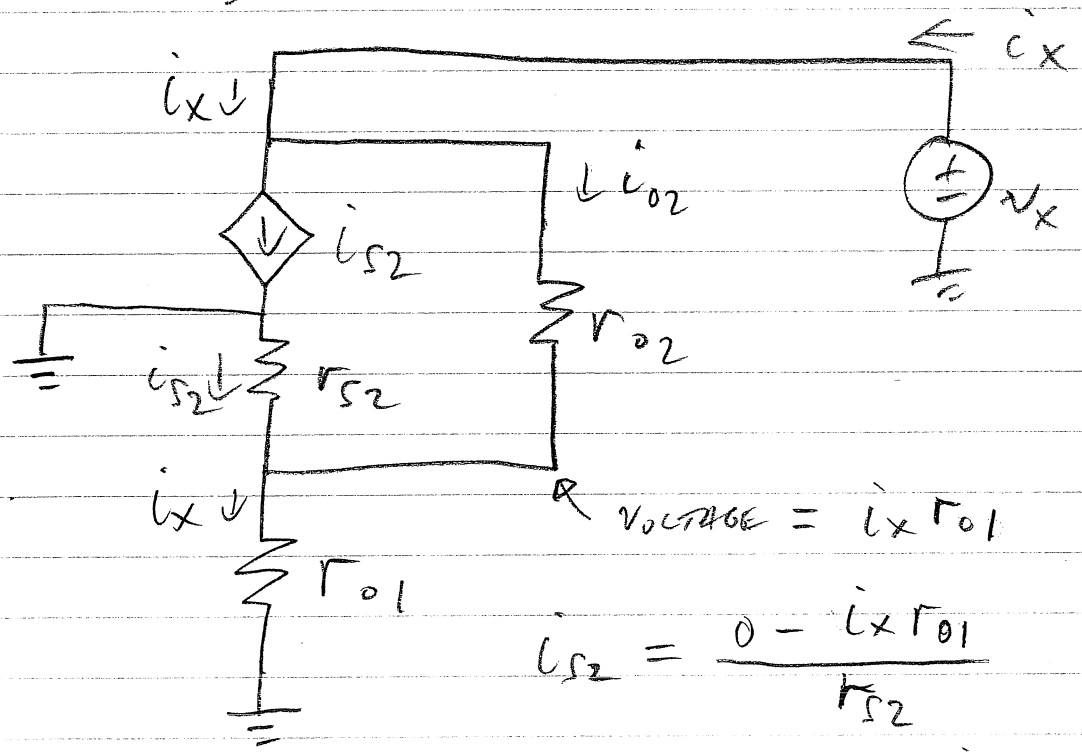 ← ix
ix ↓
↓ io2
+
−
vx
↓ is2
ro2
is2 ↓ rs2
ix ↓
VOLTAGE = ix ro1
ro1
is2 = (0 - ix ro1) / rs2